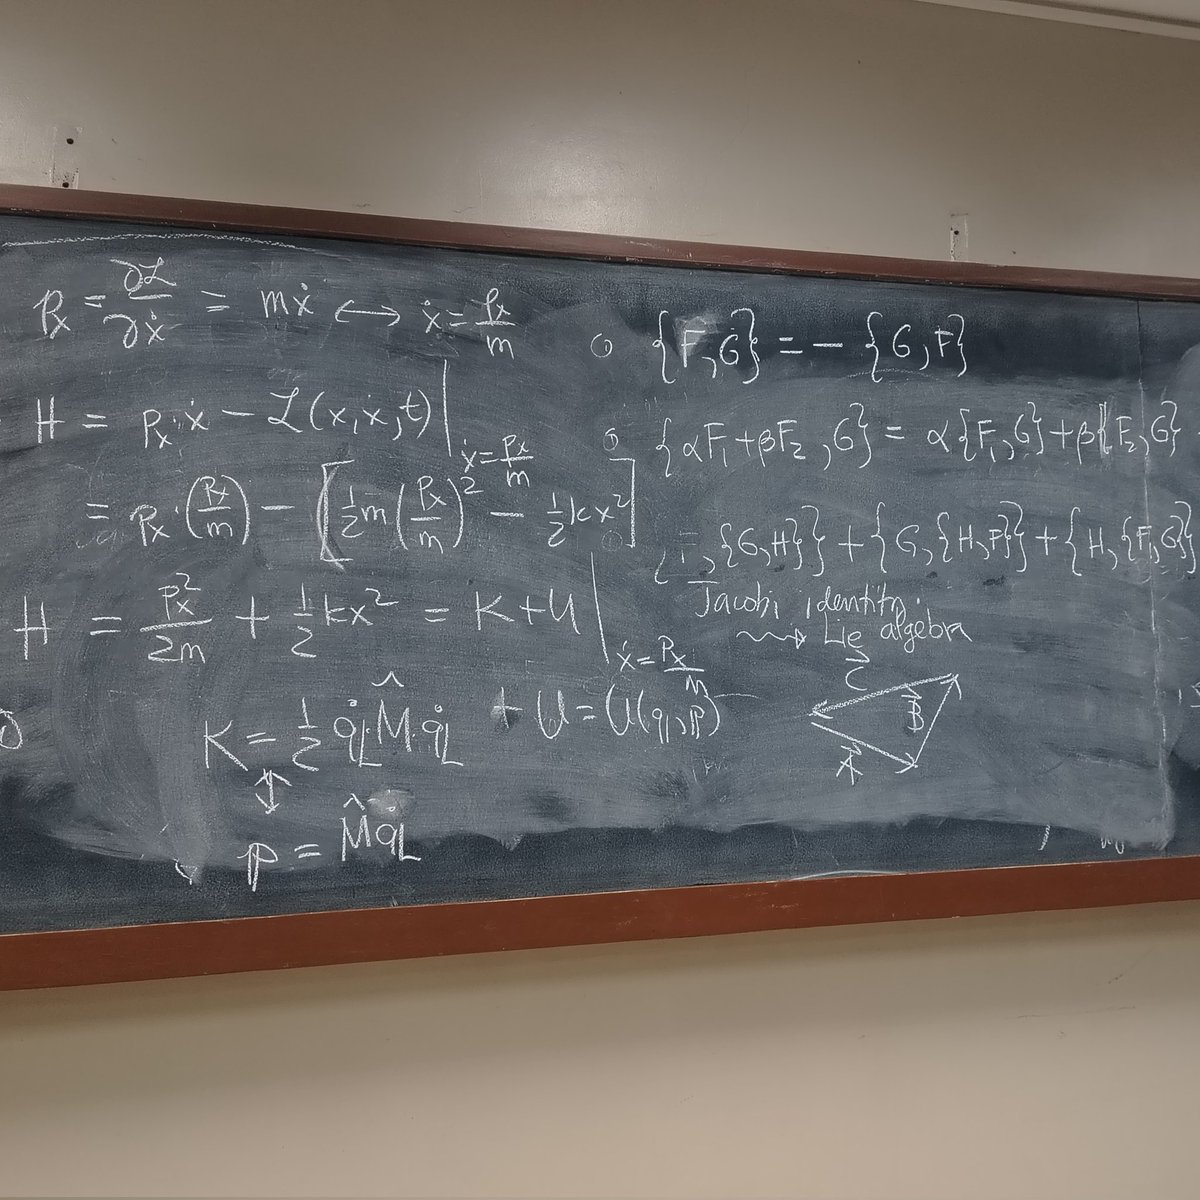 Pₓ = ∂ℒ/∂ẋ = mẋ ⟷ ẋ = Pₓ/m
H = Pₓ·ẋ − ℒ(x,ẋ,t)|ẋ=Pₓ/m
= Pₓ·(Pₓ/m) − [½m(Pₓ/m)² − ½kx²]
H = Pₓ²/2m + ½kx² = K+U|ẋ=Pₓ/m
K = ½ q̇·M̂·q̇ + U = U(q,ℙ)
↕
ℙ = M̂q̇
{F,G} = −{G,F}
{αF₁+βF₂,G} = α{F₁,G}+β{F₂,G}
{G,H}}+{G,{H,F}}+{H,{F,G}}
Jacobi identity.
⇝ Lie algebra
C⃗
B⃗
A⃗